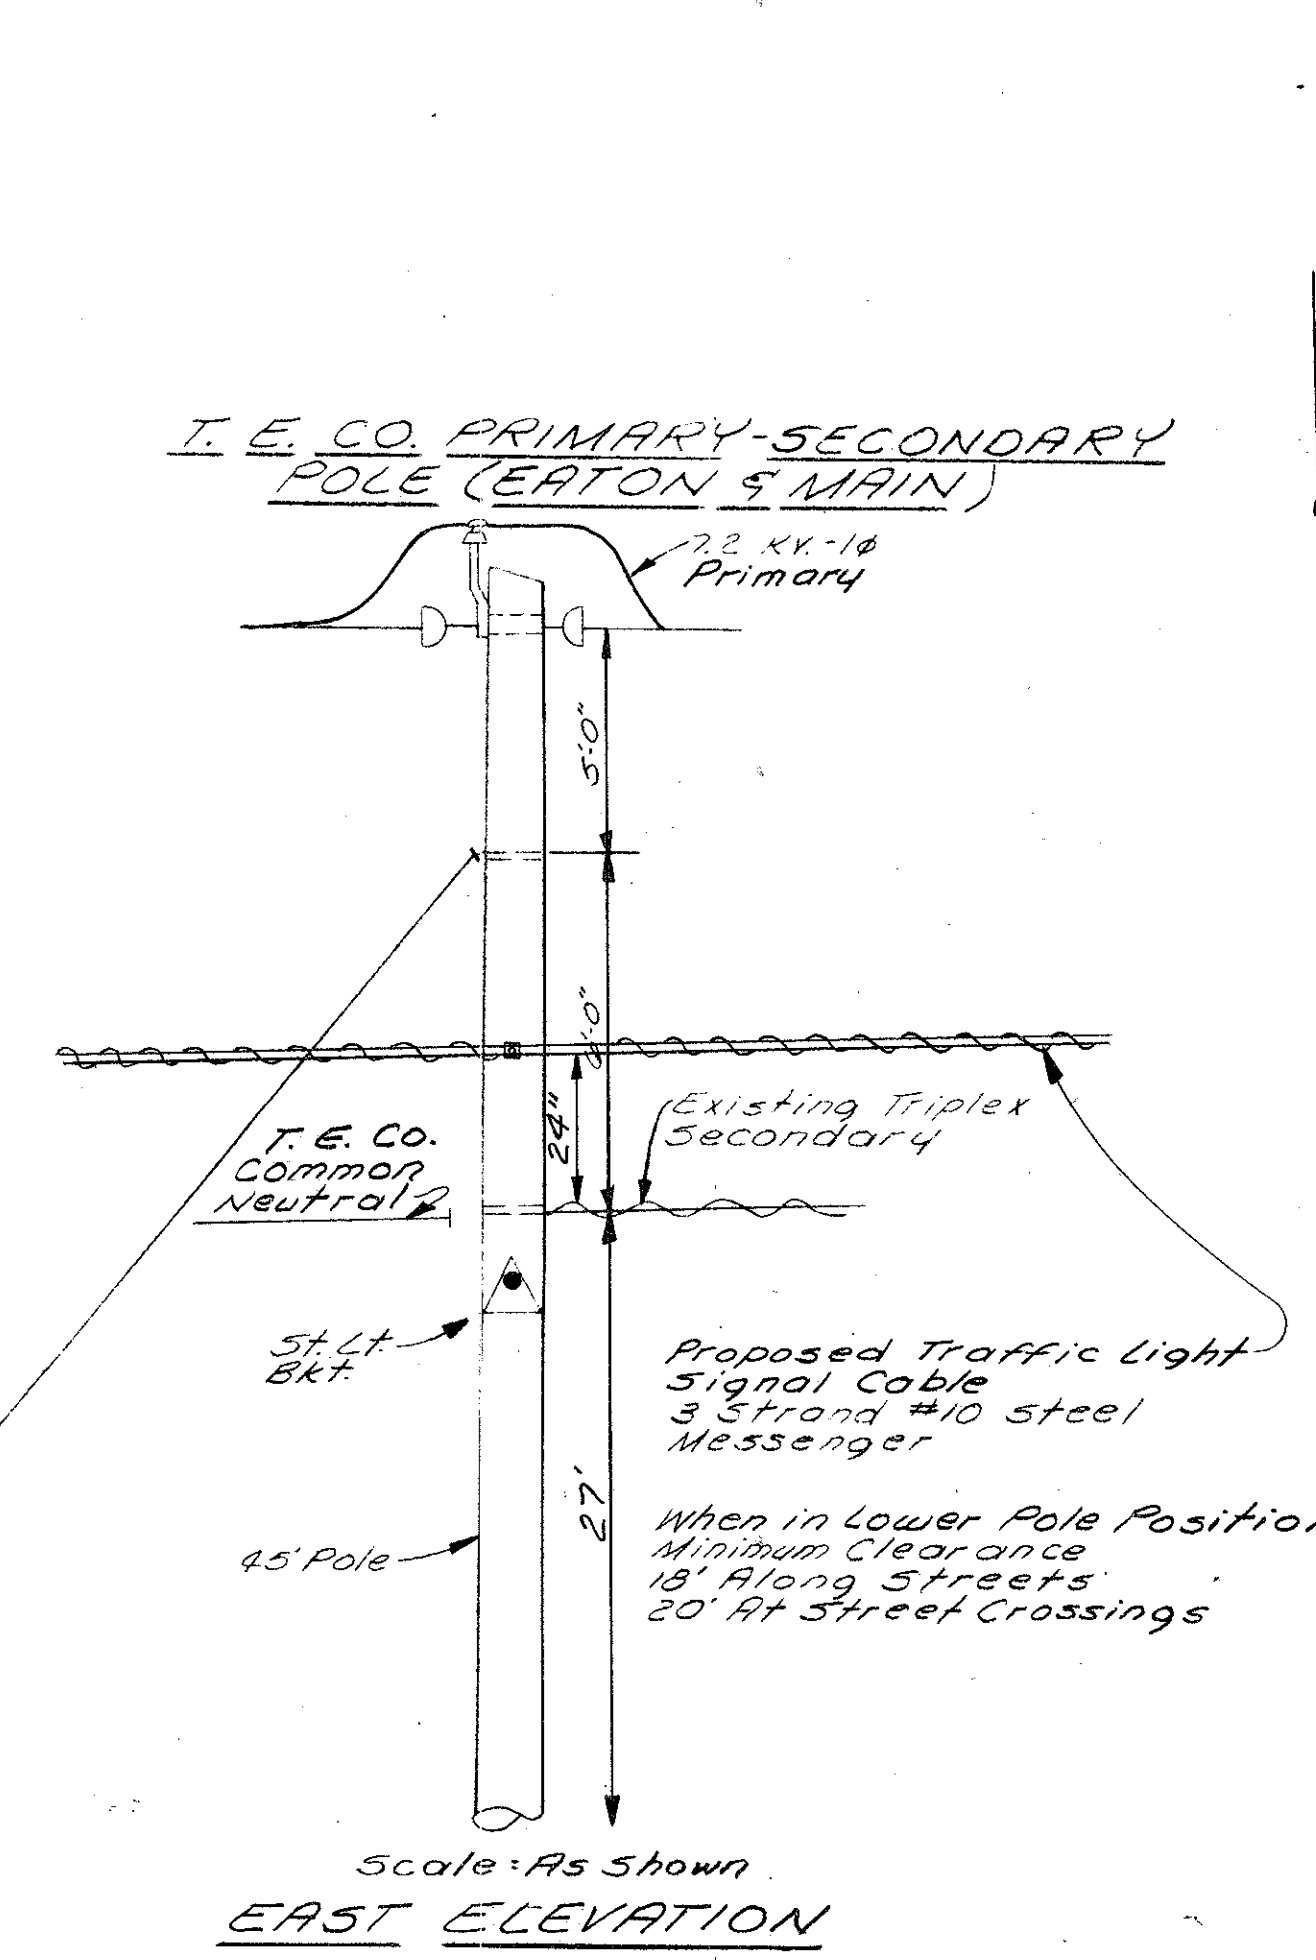 T. E. CO. PRIMARY-SECONDARY
POLE (EATON & MAIN)
7.2 KV.-1φ
Primary
5'-0"
24"
T. E. CO.
Common
Neutral
Existing Triplex
Secondary
St. Lt.
Bkt.
Proposed Traffic Light
Signal Cable
3 Strand #10 Steel
Messenger
27'
When in Lower Pole Position
Minimum Clearance
18' Along Streets
20' At Street Crossings
45' Pole
Scale: As Shown
EAST ELEVATION